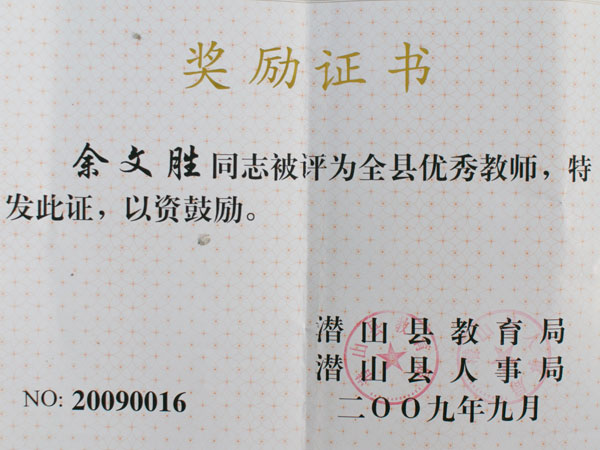 奖励证书
余文胜同志被评为全县优秀教师，特
发此证，以资鼓励。
潜山县教育局
潜山县人事局
NO: 20090016
二〇〇九年九月